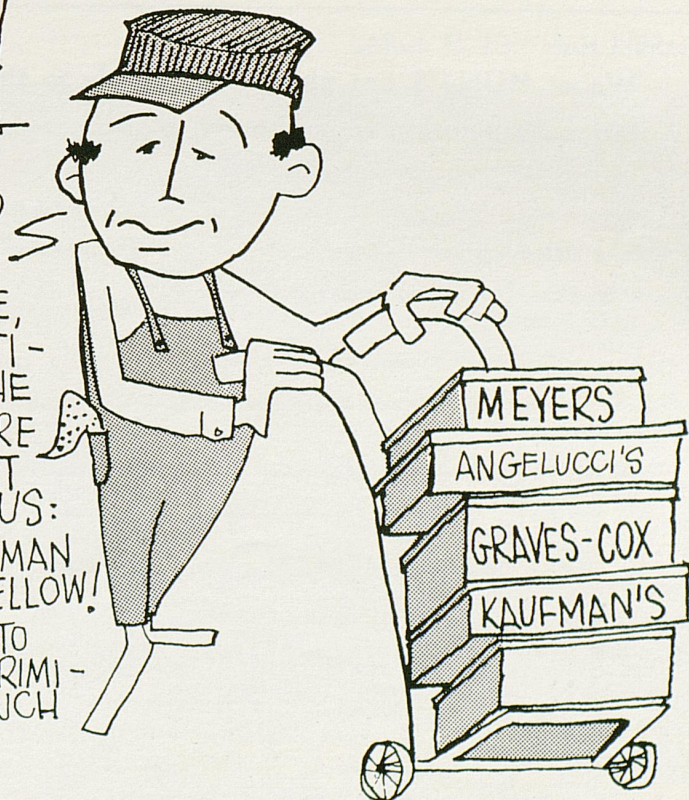 E,
TI-
HE
RE
T
US:
MAN
ELLOW!
TO
RIMI-
NCH
MEYERS
ANGELUCCI'S
GRAVES-COX
KAUFMAN'S